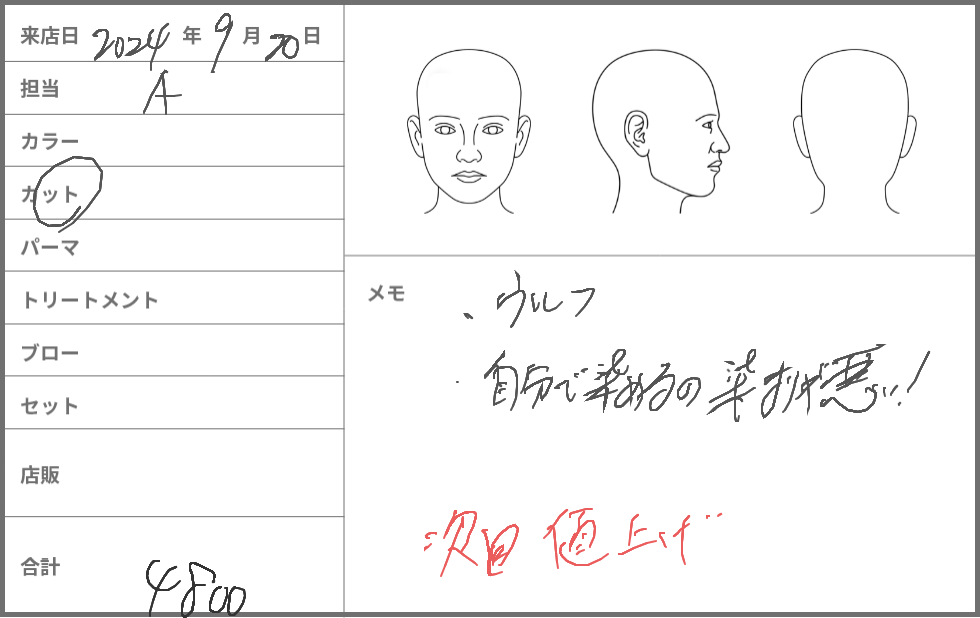 来店日 2024 年 9 月 20 日
担当 A
カラー
カット
パーマ
トリートメント
ブロー
セット
店販
合計 4800
メモ
・ウルフ
・自分で染めるの 染まりが悪い!
次回 値上げ